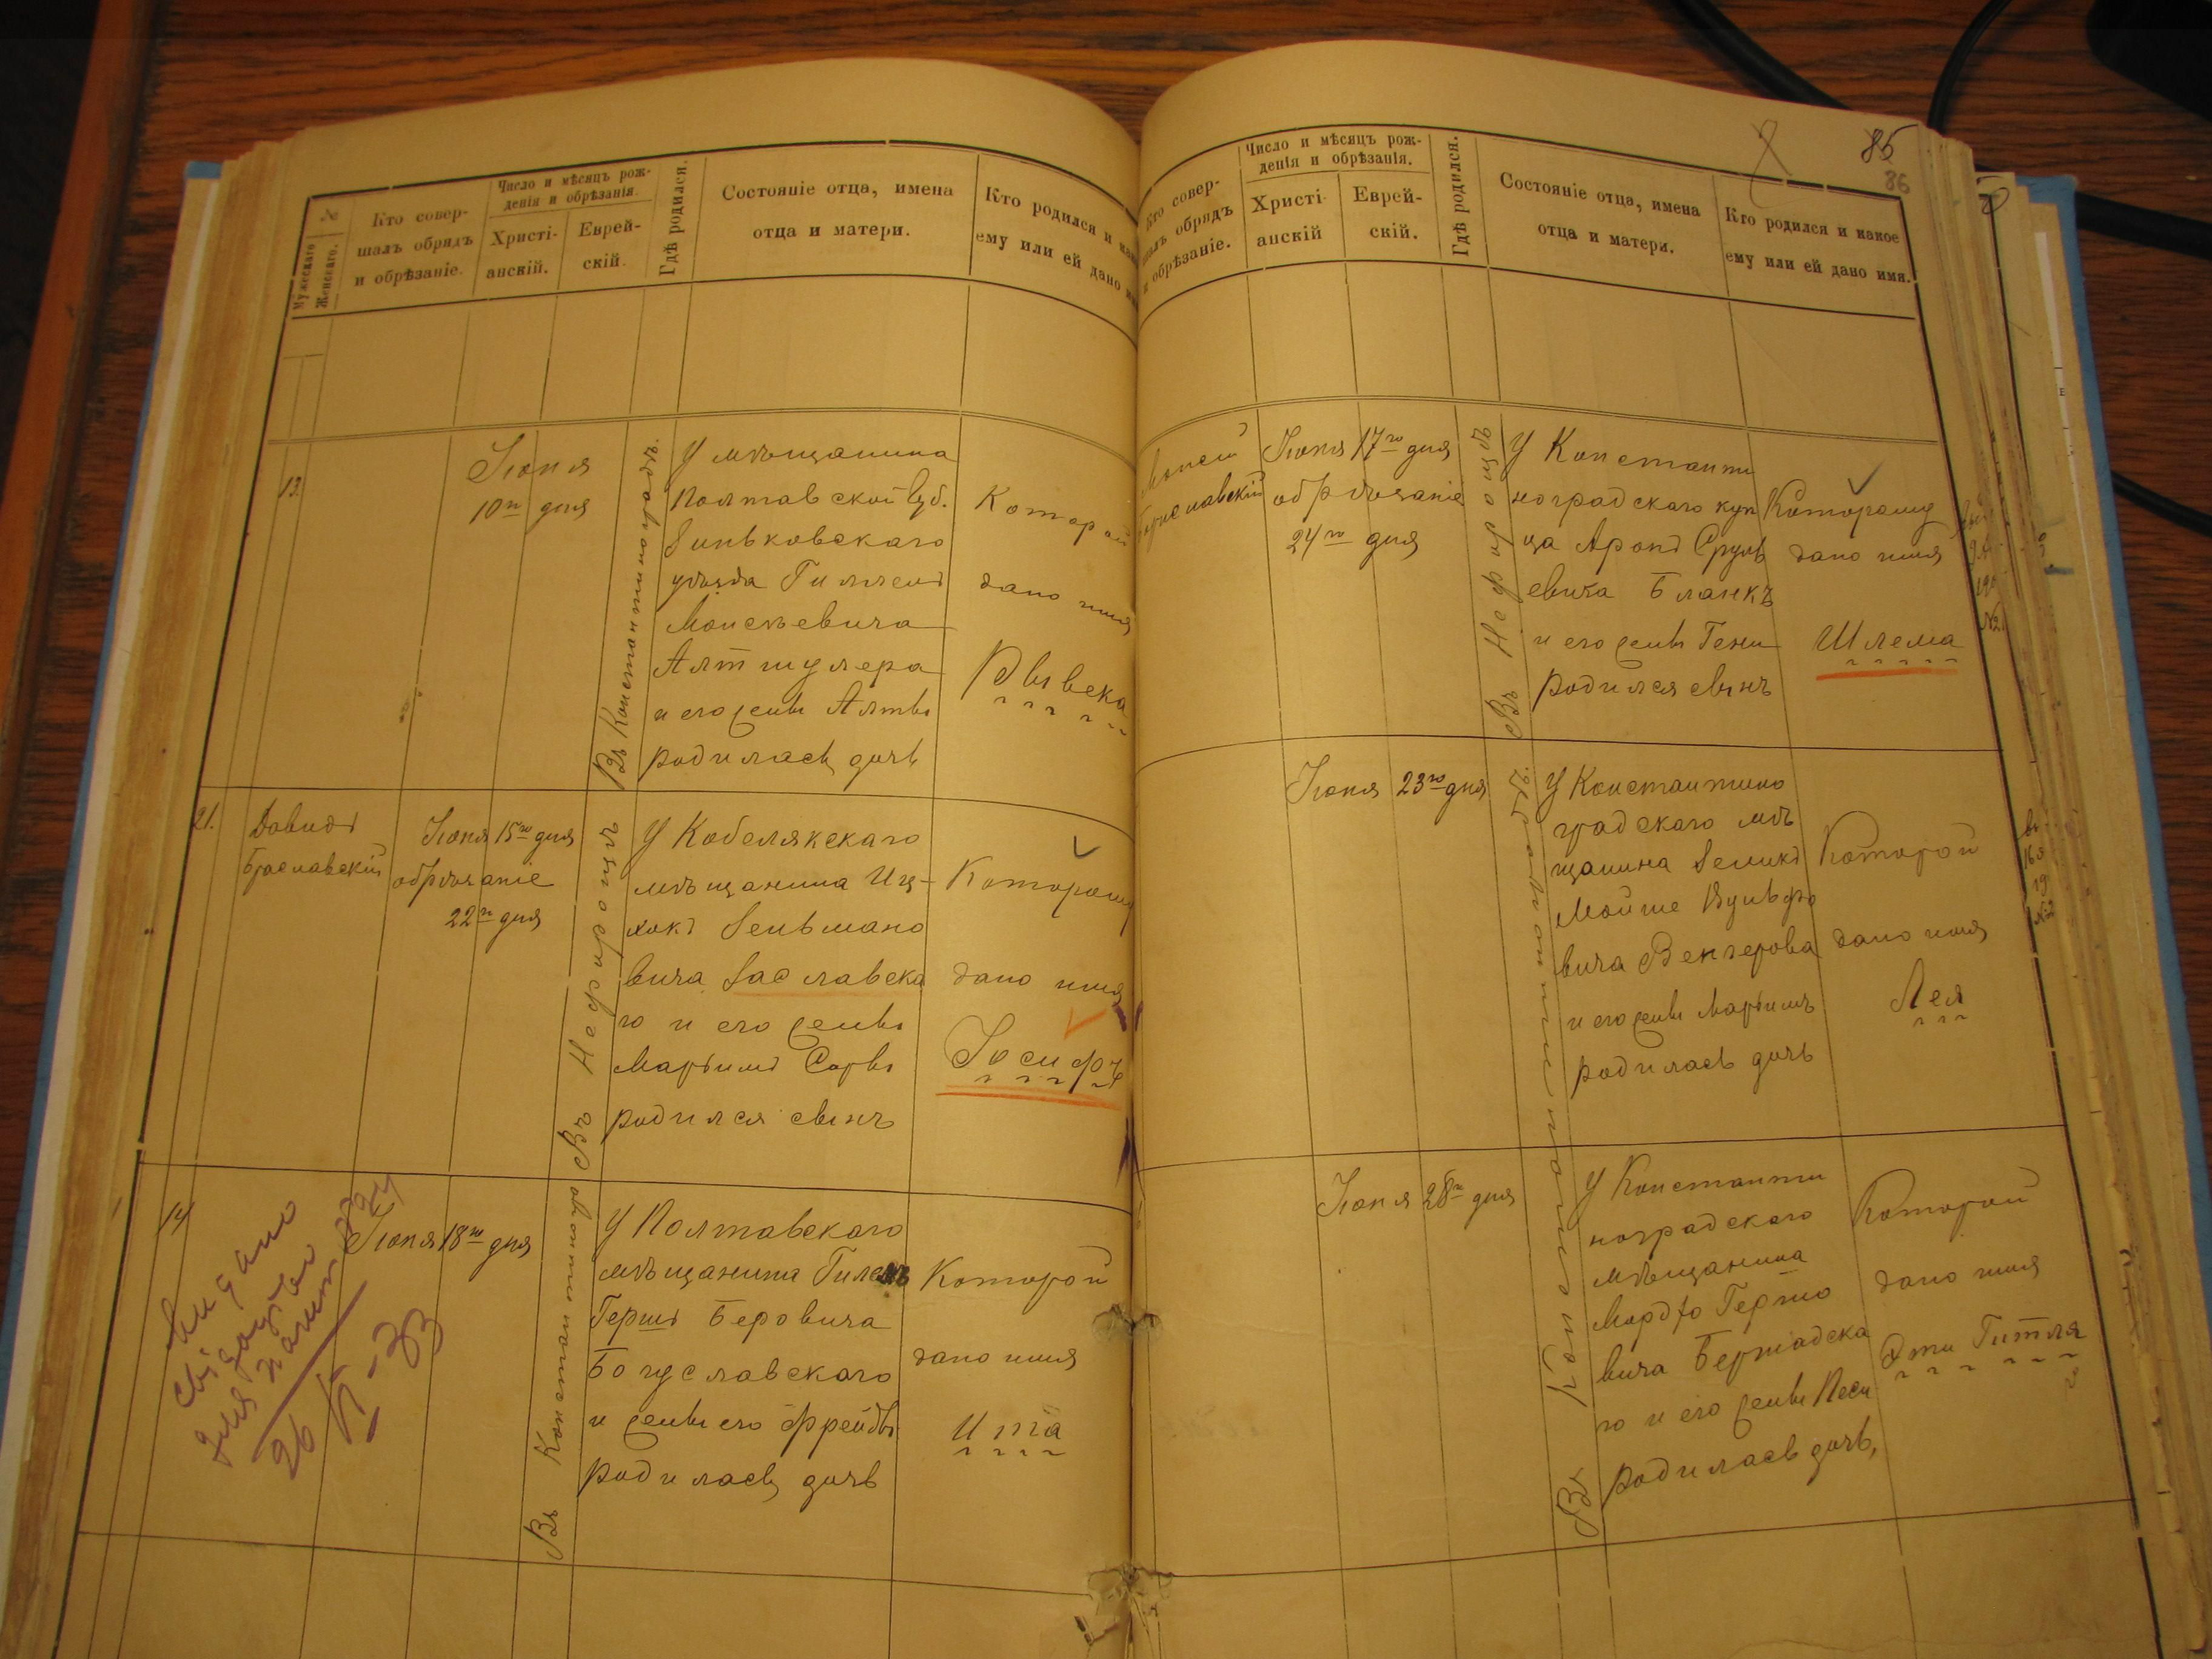 №
Мужескаго
Женскаго.
Кто совер-
шалъ обрядъ
и обрѣзаніе.
Число и мѣсяцъ рож-
денія и обрѣзанія.
Христі-
анскій.
Еврей-
скій.
Гдѣ родился.
Состояніе отца, имена
отца и матери.
Кто родился и
ему или ей дано
13.
Іюня
10го дня
Въ Константиноградѣ
У мѣщанина
Полтавской Губ.
Зиньковскаго
уѣзда
Моисѣевича
Алтшулера
и его жены Алты
родилась дочь
Которой
дано имя
Рывека
21.
Давидъ
Браславскій
Іюня 15го дня
обрѣзаніе
22го дня
У Кобелякскаго
мѣщанина Иц-
хокъ Зельмано
вича Заславска
го и его жены
Марьимъ Соры
родился сынъ
Которому
дано имя
Іосифъ
14
Іюня 18го дня
Въ
У Полтавскаго
мѣщанина
Гершъ Беровича
Богуславскаго
и жены его Фрейды
родилась дочь
Которой
дано имя
Ита
видано
свідоцтво
для
26
85
86
Кто совер-
шалъ обрядъ
и обрѣзаніе.
Число и мѣсяцъ рож-
денія и обрѣзанія.
Христі-
анскій
Еврей-
скій.
Гдѣ родился.
Состояніе отца, имена
отца и матери.
Кто родился и какое
ему или ей дано имя.
Іюня 17го дня
обрѣзаніе
24го дня
У Константи
ноградскаго куп
ца Аронъ Сруль
евича Бланкъ
и его жены Гени
родился сынъ
Которому
дано имя
Шлема
Іюня 23го дня
У Константино
градскаго мѣ
щанина Зеликъ
Мойше Вульфо
вича Венгерова
и его жены Марьимъ
родилась дочь
Которой
дано имя
Лея
Іюня 28го дня
Въ
У Константи
ноградскаго
мѣщанина
Мордхо Гершо
вича Бершадска
го и его жены Песи
родилась дочь,
Которой
дано имя
Эти Гитля